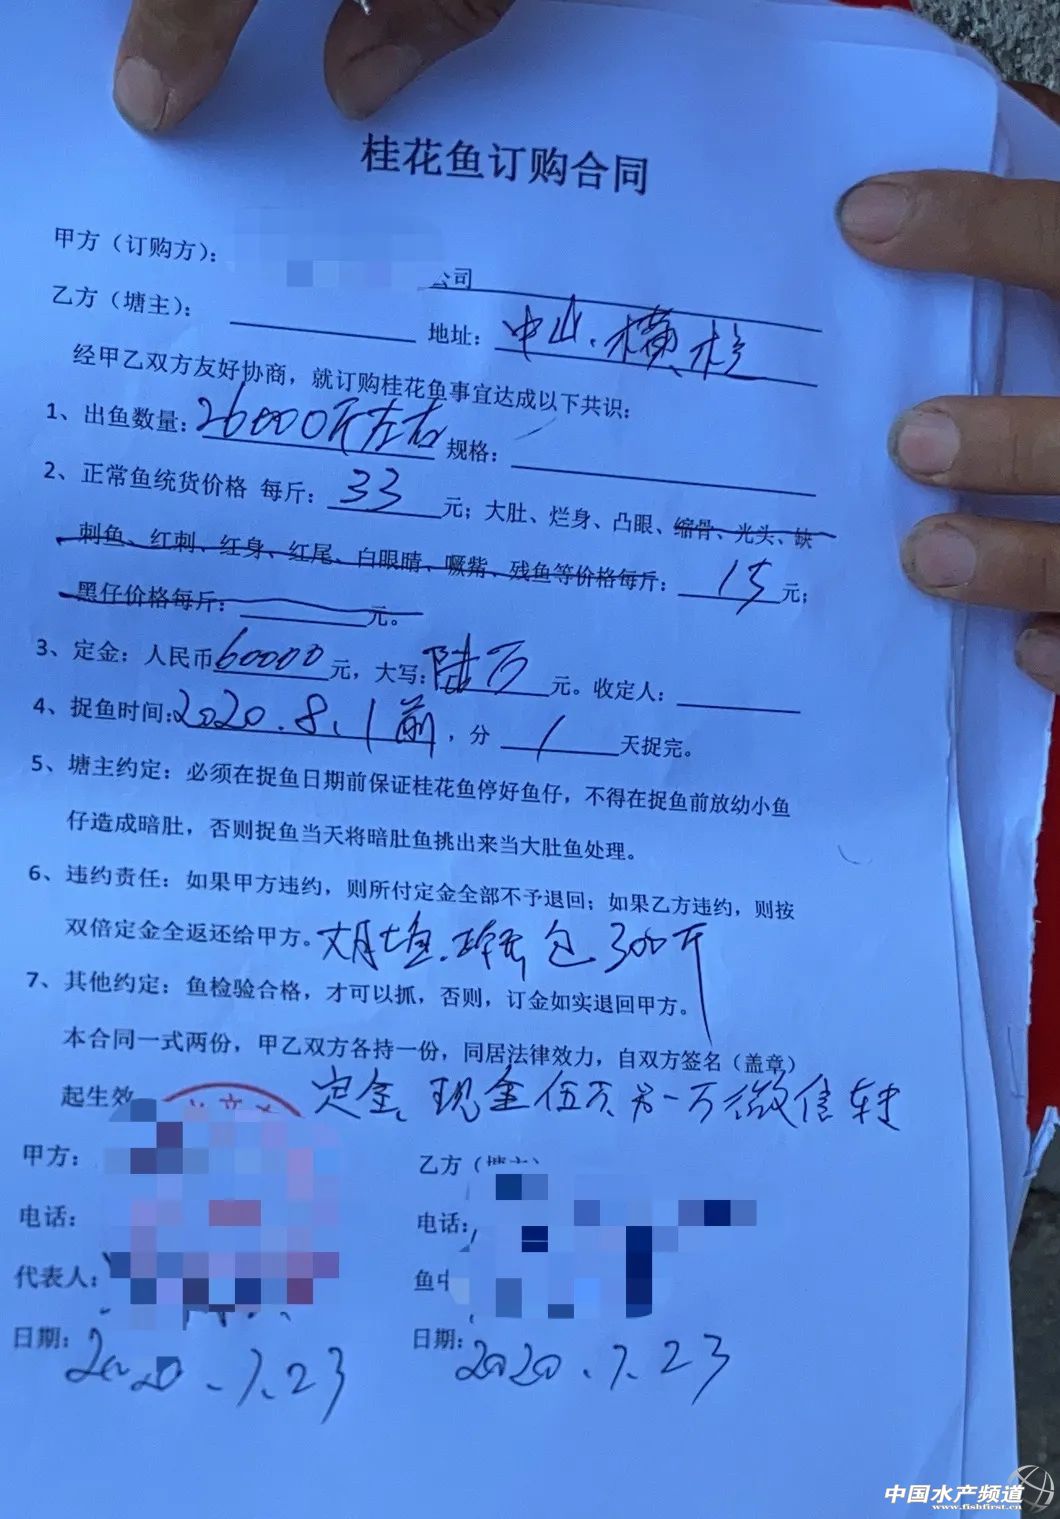 桂花鱼订购合同
甲方（订购方）： 公司
乙方（塘主）： 地址：中山.横栏
经甲乙双方友好协商，就订购桂花鱼事宜达成以下共识：
1、出鱼数量：26000斤左右 规格：
2、正常鱼统货价格 每斤：33元；大肚、烂身、凸眼、缩骨、光头、缺
刺鱼、红刺、红身、红尾、白眼睛、噘紫、残鱼等价格每斤：15元；
黑仔价格每斤： 元。
3、定金：人民币60000元，大写：陆万元。收定人：
4、捉鱼时间：2020.8.1前，分1天捉完。
5、塘主约定：必须在捉鱼日期前保证桂花鱼停好鱼仔，不得在捉鱼前放幼小鱼
仔造成暗肚，否则捉鱼当天将暗肚鱼挑出来当大肚鱼处理。
6、违约责任：如果甲方违约，则所付定金全部不予退回；如果乙方违约，则按
双倍定金全返还给甲方。 包300斤
7、其他约定：鱼检验合格，才可以抓，否则，订金如实退回甲方。
本合同一式两份，甲乙双方各持一份，同居法律效力，自双方签名（盖章）
起生效 定金.现金伍万.另一万微信转
甲方： 乙方（塘主）
电话： 电话：
代表人： 鱼中
日期：2020.7.23 日期：2020.7.23
中国水产频道
www.fishfirst.cn